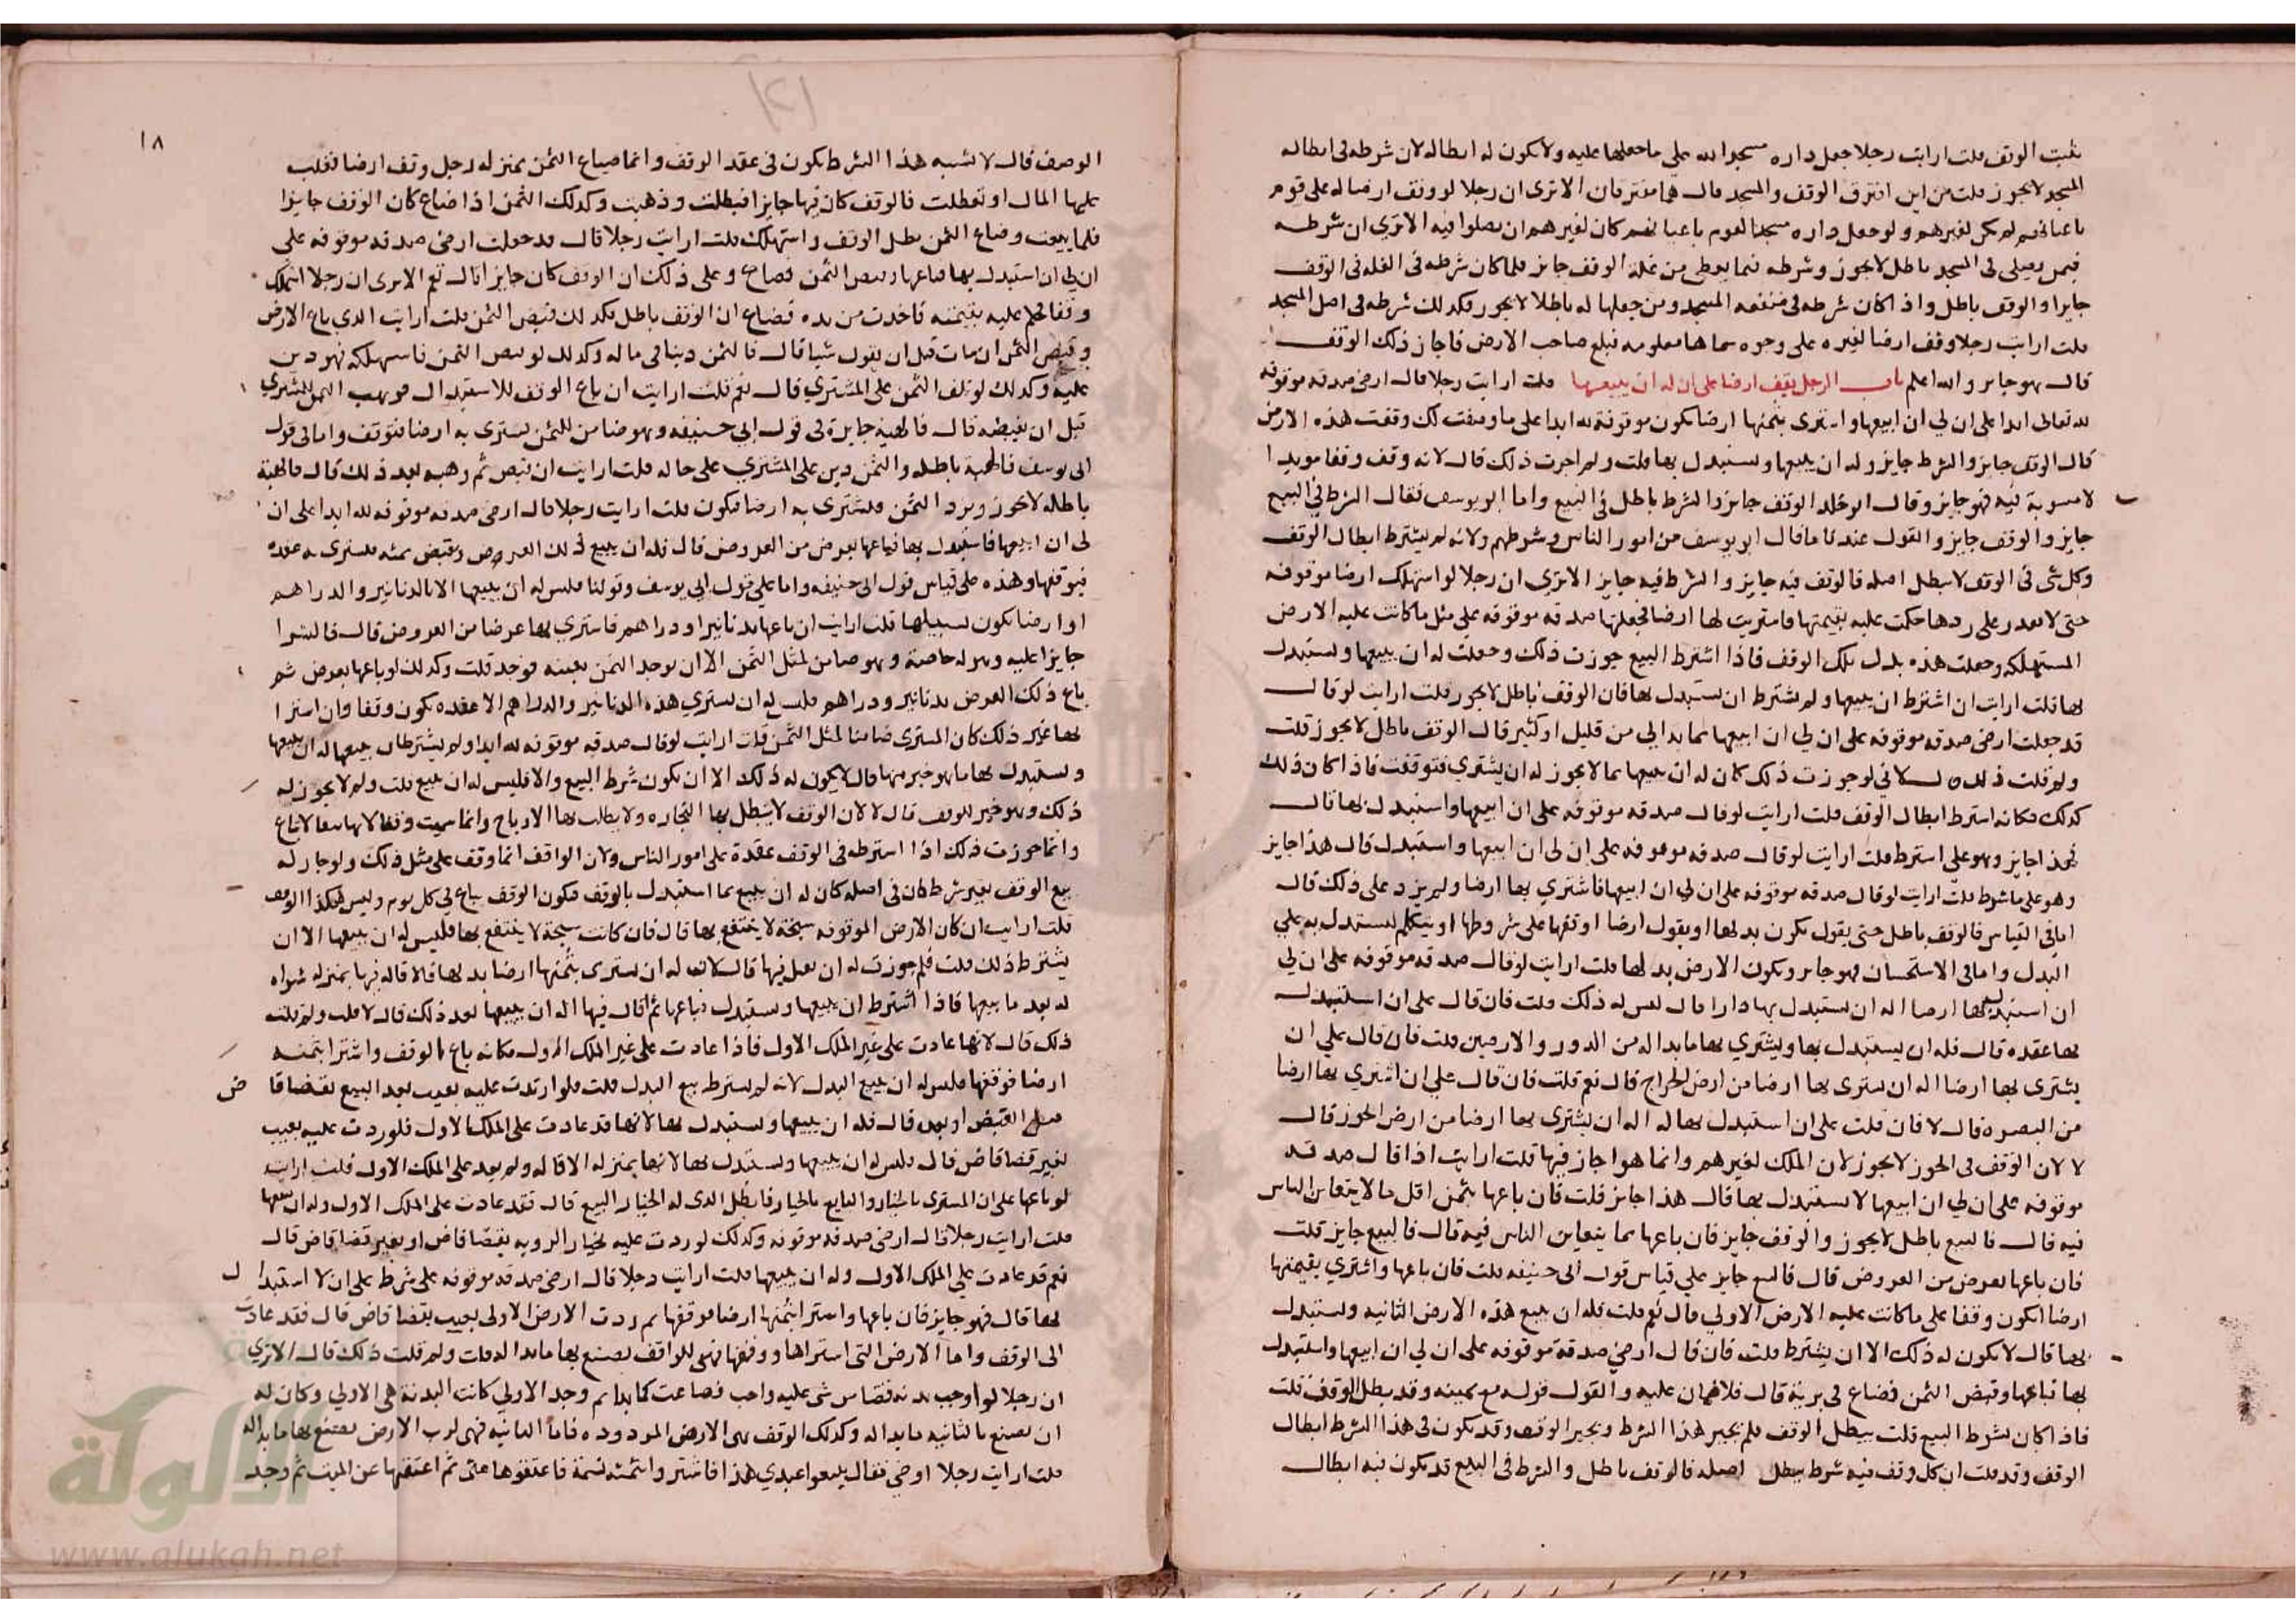 يثبت الوقف قلت ارايت رجلا جعل داره مسجدا لله على ما جعلها عليه ولا يكون له ابطاله لان شرطه في ابطاله
المسجد لا يجوز قلت من اين افترق الوقف والمسجد قال هما مفترقان الا ترى ان رجلا لو وقف ارضا له على قوم
باعيانهم لم يكن لغيرهم ولو جعل داره مسجدا لقوم باعيانهم كان لغيرهم ان يصلوا فيه الا ترى ان شرطه
فيمن يصلي في المسجد باطل لا يجوز وشرطه فيما يعطي من غلة الوقف جايز فلما كان شرطه في الغلة في الوقف
جايزا والوقف باطل واذا كان شرطه في منفعة المسجد ومن جعلها له باطلا لا يجوز فكذلك شرطه في اصل المسجد
قلت ارايت رجلا وقف ارضا لغيره على وجوه سماها معلومة فبلغ صاحب الارض فاجاز ذلك الوقف
قال هو جايز والله اعلم باب الرجل يقف ارضا على ان له ان يبيعها قلت ارايت رجلا قال ارضي صدقة موقوفة
لله تعالى ابدا على ان لي ان ابيعها واشتري بثمنها ارضا تكون موقوفة لله ابدا على ما وصفت لك وقفت هذه الارض
قال الوقف جايز والشرط جايز وله ان يبيعها ويستبدل بها قلت ولم اجزت ذلك قال لانه وقف وقفا موبدا
لا مثنوية فيه فهو جايز وقال ابو خلد الوقف جايز والشرط باطل في البيع واما ابو يوسف فقال الشرط في البيع
جايز والوقف جايز والقول عندنا ما قال ابو يوسف من امور الناس وشروطهم ولانه لم يشترط ابطال الوقف
وكل شي في الوقف لا يبطل اصله فالوقف فيه جايز والشرط فيه جايز الا ترى ان رجلا لو استهلك ارضا موقوفة
حتى لا يقدر على ردها حكمت عليه بقيمتها فاشتريت بها ارضا فجعلتها صدقة موقوفة على مثل ما كانت عليه الارض
المستهلكة وجعلت هذه بدل تلك الوقف فاذا اشترط البيع جوزت ذلك وجعلت له ان يبيعها ويستبدل
بها قلت ارايت ان اشترط ان يبيعها ولم يشترط ان يستبدل بها قال الوقف باطل لا يجوز قلت ارايت لو قال
قد جعلت ارضي صدقة موقوفة على ان لي ان ابيعها بما بدا لي من قليل او كثير قال الوقف باطل لا يجوز قلت
ولم قلت ذلك قال لاني لو جوزت ذلك كان له ان يبيعها بما لا يجوز له ان يشتري فتوقف فاذا كان ذلك
كذلك فكانه اشترط ابطال الوقف قلت ارايت لو قال صدقة موقوفة على ان ابيعها واستبدل بها قال
هذا جايز وهو على ما اشترط قلت ارايت لو قال صدقة موقوفة على ان لي ان ابيعها واستبدل قال هذا جايز
وهو على ما شرط قلت ارايت لو قال صدقة موقوفة على ان لي ان ابيعها فاشتري بها ارضا ولم يزد على ذلك قال
اما في القياس فالوقف باطل حتى يقول تكون بدلها او يقول ارضا اوقفها على شروطها او يتكلم يستدل به على
البدل واما في الاستحسان فهو جايز وتكون الارض بدلها قلت ارايت لو قال صدقة موقوفة على ان لي
ان استبدل بها ارضا اله ان يستبدل بها دارا قال ليس له ذلك قلت فان قال على ان استبدل
بها عقدة قال فله ان يستبدل بها ويشتري بها ما بدا له من الدور والارضين قلت فان قال على ان
يشتري بها ارضا اله ان يشتري بها ارضا من ارض الخراج قال نعم قلت فان قال على ان اشتري بها ارضا
من البصرة قال لا فان قلت على ان استبدل بها له اله ان يشتري بها ارضا من ارض الحوز قال
لا لان الوقف في الحوز لا يجوز لان الملك لغيرهم وانما هو اجاز فيها قلت ارايت اذا قال صدقة
موقوفة على ان لي ان ابيعها لا يستبدل بها قال هذا جايز قلت فان باعها بثمن اقل ما لا يتغابن الناس
فيه قال فالبيع باطل لا يجوز والوقف جايز فان باعها بما يتغابن الناس فيه قال فالبيع جايز قلت
فان باعها بعرض من العروض قال فالبيع جايز على قياس قول ابي حنيفة قلت فان باعها واشترى بقيمتها
ارضا اتكون وقفا على ما كانت عليه الارض الاولى قال نعم قلت فله ان يبيع هذه الارض الثانية ويستبدل
بها قال لا يكون له ذلك الا ان يشترط قلت فان قال ارضي صدقة موقوفة على ان لي ان ابيعها واستبدل
بها فباعها وقبض الثمن فضاع في يديه قال فلا ضمان عليه والقول قوله مع يمينه وقد بطل الوقف قلت
فاذا كان بشرط البيع قلت يبطل الوقف فلم تجيز هذا الشرط وتجيز الوقف وقد يكون في هذا الشرط ابطال
الوقف وقد قلت ان كل وقف فيه شرط يبطل اصله فالوقف باطل والشرط في البيع قد يكون فيه ابطال
١٨
الوصف قال لا يشبه هذا الشرط يكون في عقد الوقف وانما ضياع الثمن بمنزلة رجل وقف ارضا فغلب
عليها الماء او تعطلت فالوقف كان فيها جايزا فبطلت وذهبت وكذلك الثمن اذا ضاع كان الوقف جايزا
فلما بيعت وضاع الثمن بطل الوقف واستهلك قلت ارايت رجلا قال قد جعلت ارضي صدقة موقوفة على
ان لي ان استبدل بها فباعها وقبض الثمن فضاع وعلى ذلك ان الوقف كان جايزا قال نعم الا ترى ان رجلا استهلك
وقفا فحكم عليه بقيمته فاخذت من يده فضاع ان الوقف باطل فكذلك قبض الثمن قلت ارايت الذي باع الارض
وقبض الثمن ان مات قبل ان يقول شيا قال فالثمن دينا في ماله وكذلك لو قبض الثمن فاستهلكه فهو دين
عليه وكذلك لو تلف الثمن على المشتري قال نعم قلت ارايت ان باع الوقف للاستبدال فوهب الثمن للمشتري
قبل ان يقبضه قال فالهبة جايزة في قول ابي حنيفة وهو ضامن للثمن يشتري به ارضا فتوقف واما في قول
ابي يوسف فالهبة باطلة والثمن دين على المشتري على حاله قلت ارايت ان قبض ثم وهبه بعد ذلك قال فالهبة
باطلة لا تجوز ويرد الثمن فيشتري به ارضا فتكون قلت ارايت رجلا قال ارضي صدقة موقوفة لله ابدا على ان
لي ان ابيعها فاستبدل بها فباعها بعرض من العروض قال فله ان يبيع ذلك العروض ويقبض ثمنه فيشتري به عقدة
فيوقفها وهذه على قياس قول ابي حنيفة واما على قول ابي يوسف وقولنا فليس له ان يبيعها الا بالدنانير والدراهم
او ارضا تكون بسبيلها قلت ارايت ان باعها بدنانير او دراهم فاشترى بها عرضا من العروض قال فالشرا
جايزا عليه وهو له خاصة وهو ضامن لمثل الثمن الا ان يوجد الثمن بعينه فوخذ قلت وكذلك لو باعها بعرض ثم
باع ذلك العرض بدنانير ودراهم فليس له ان يشتري هذه الدنانير والدراهم الا عقدة تكون وقفا وان اشترا
بها غير ذلك كان المشتري ضامنا لمثل الثمن قلت ارايت لو قال صدقة موقوفة لله ابدا ولم يشترط ان يبيعها له ان يبيعها
ويستبدل بها ما هو خير منها قال لا يكون له ذلك الا ان يكون شرط البيع والا فليس له ان يبيع قلت ولم لا يجوز له
ذلك وهو خير للوقف قال لا لان الوقف لا يطلب بها التجارة ولا يطلب بها الارباح وانما سميت وقفا لانها لا تباع
وانما جوزت ذلك اذا اشترطه في الوقف عقدة على امور الناس ولان الواقف انما وقف على مثل ذلك ولو جاز له
بيع الوقف بغير شرط كان في اصله كان له ان يبيع بما استبدل بالوقف فتكون الوقف يباع في كل يوم وليس هكذا الوقف
قلت ارايت ان كان الارض الموقوفة سبخة لا ينتفع بها قال فان كانت سبخة لا ينتفع بها فليس له ان يبيعها الا ان
يشترط ذلك قلت فلم جوزت له ان يقيل فيها قال لان له ان يشتري بثمنها ارضا بدلها فالاقالة فيها بمنزلة شراه
له بعد ما بيعها فاذا اشترط ان يبيعها ويستبدل فباعها ثم اقال فيها اله ان يبيعها بعد ذلك قال لا قلت ولم قلت
ذلك قال لانها عادت على غير الملك الاول فاذا عادت على غير الملك الاول فكانه باع الوقف واشترا بثمنه
ارضا فوقفها فليس له ان يبيع البدل لانه لم يشترط بيع البدل قلت فلو ارتدت عليه بعيب بعد البيع بقضا قاض
قبل القبض او بعده قال فله ان يبيعها ويستبدل بها لانها قد عادت على الملك الاول فلو ردت عليه بعيب
بغير قضا قاض قال فليس له ان يبيعها ويستبدل بها لانها بمنزلة الاقالة ولم يعد على الملك الاول قلت ارايت
لو باعها على ان المشتري بالخيار والبايع بالخيار فابطل الذي له الخيار البيع قال فقد عادت على الملك الاول وله ان يبيعها
قلت ارايت رجلا قال ارضي صدقة موقوفة وكذلك لو ردت عليه بخيار الروية بقضا قاض او بغير قضا قاض قال
نعم قد عادت على الملك الاول وله ان يبيعها قلت ارايت رجلا قال ارضي صدقة موقوفة على شرط على ان لا استبدل
بها قال فهو جايز فان باعها واشترا بثمنها ارضا فوقفها ثم ردت الارض الاولى بعيب بقضا قاض قال فقد عادت
الى الوقف واما الارض التي اشتراها ووقفها فهي للواقف يصنع بها ما بدا له قلت ولم قلت ذلك قال الا ترى
ان رجلا لو اوجب بدنة فضاعت ثم وجد الاولى كانت البدنة هي الاولى وكان له
ان يصنع بالثانية ما بدا له وكذلك الوقف هي الارض المردودة فاما الثانية فهي لرب الارض يصنع بها ما بدا له
قلت ارايت رجلا اوصى فقال بيعوا عبدي هذا فاشتروا بثمنه نسمة فاعتقوها عني ثم اعتقها عن الميت ثم وجد
الألوكة
www.alukah.net